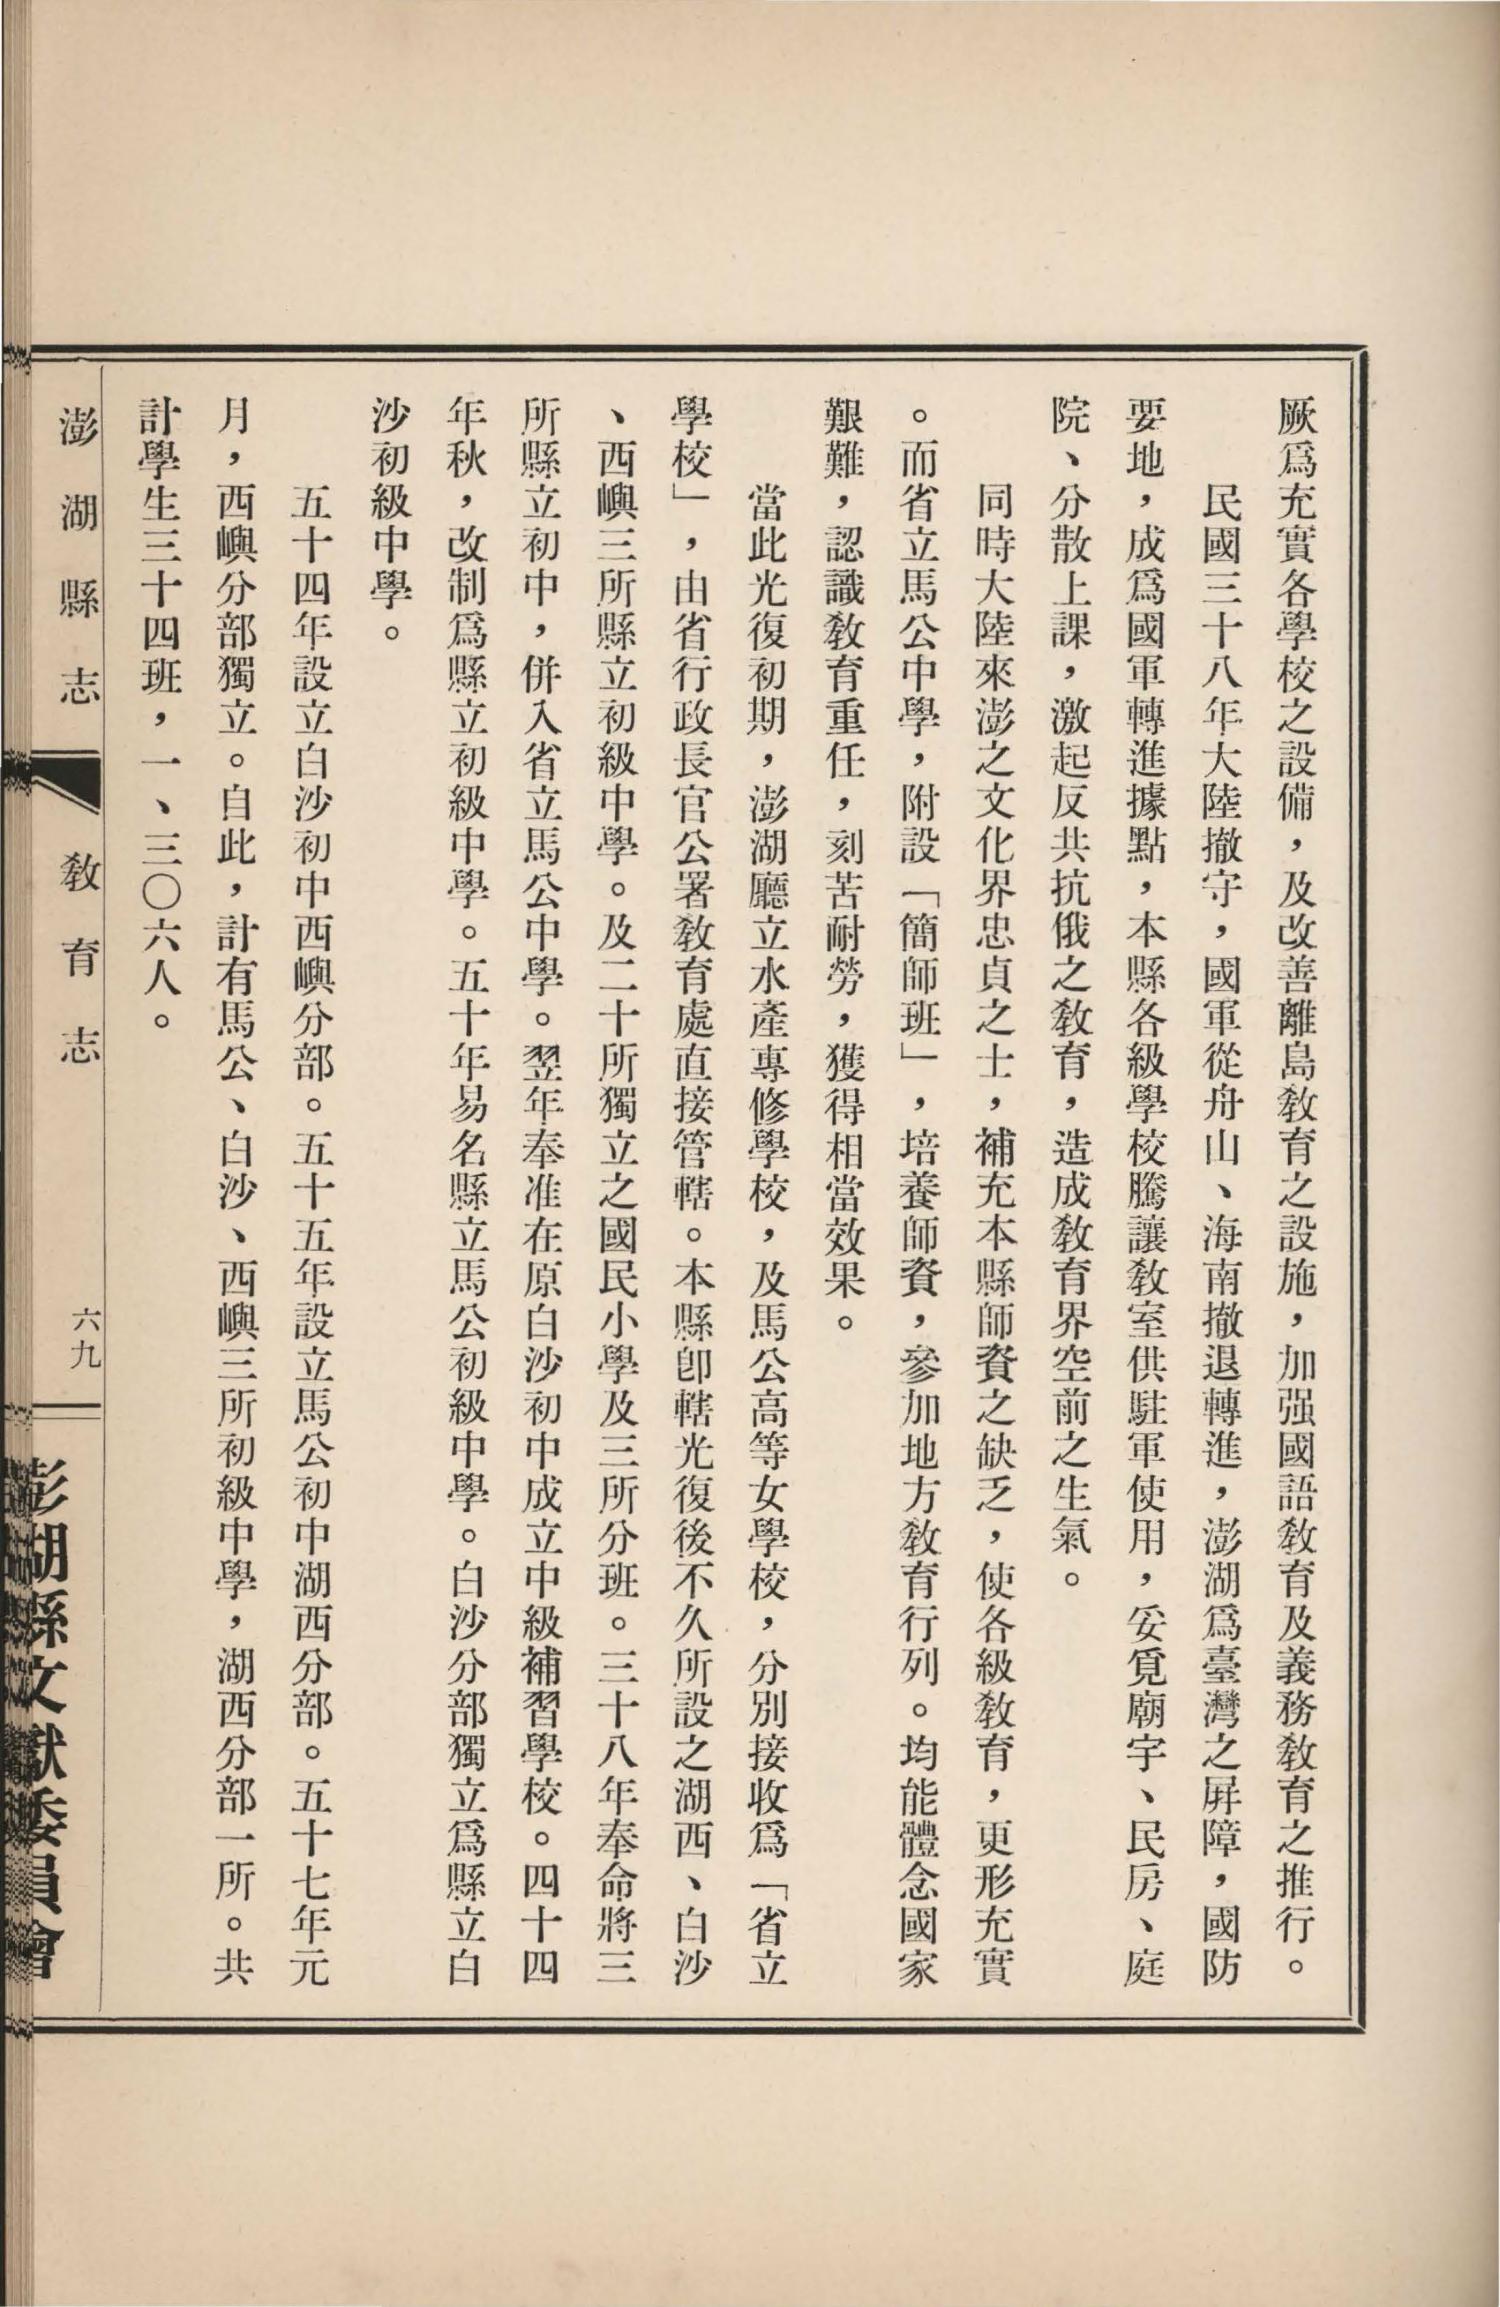 厥爲充實各學校之設備，及改善離島敎育之設施，加强國語敎育及義務敎育之推行。
民國三十八年大陸撤守，國軍從舟山、海南撤退轉進，澎湖爲臺灣之屛障，國防
要地，成爲國軍轉進據點，本縣各級學校騰讓敎室供駐軍使用，妥覓廟宇、民房、庭
院、分散上課，激起反共抗俄之敎育，造成敎育界空前之生氣。
同時大陸來澎之文化界忠貞之士，補充本縣師資之缺乏，使各級敎育，更形充實
。而省立馬公中學，附設「簡師班」，培養師資，參加地方敎育行列。均能體念國家
艱難，認識敎育重任，刻苦耐勞，獲得相當效果。
當此光復初期，澎湖廳立水產專修學校，及馬公高等女學校，分別接收爲「省立
學校」，由省行政長官公署敎育處直接管轄。本縣卽轄光復後不久所設之湖西、白沙
、西嶼三所縣立初級中學。及二十所獨立之國民小學及三所分班。三十八年奉命將三
所縣立初中，併入省立馬公中學。翌年奉准在原白沙初中成立中級補習學校。四十四
年秋，改制爲縣立初級中學。五十年易名縣立馬公初級中學。白沙分部獨立爲縣立白
沙初級中學。
五十四年設立白沙初中西嶼分部。五十五年設立馬公初中湖西分部。五十七年元
月，西嶼分部獨立。自此，計有馬公、白沙、西嶼三所初級中學，湖西分部一所。共
計學生三十四班，一、三〇六人。
澎湖縣志 敎育志 六九
澎湖縣文獻委員會